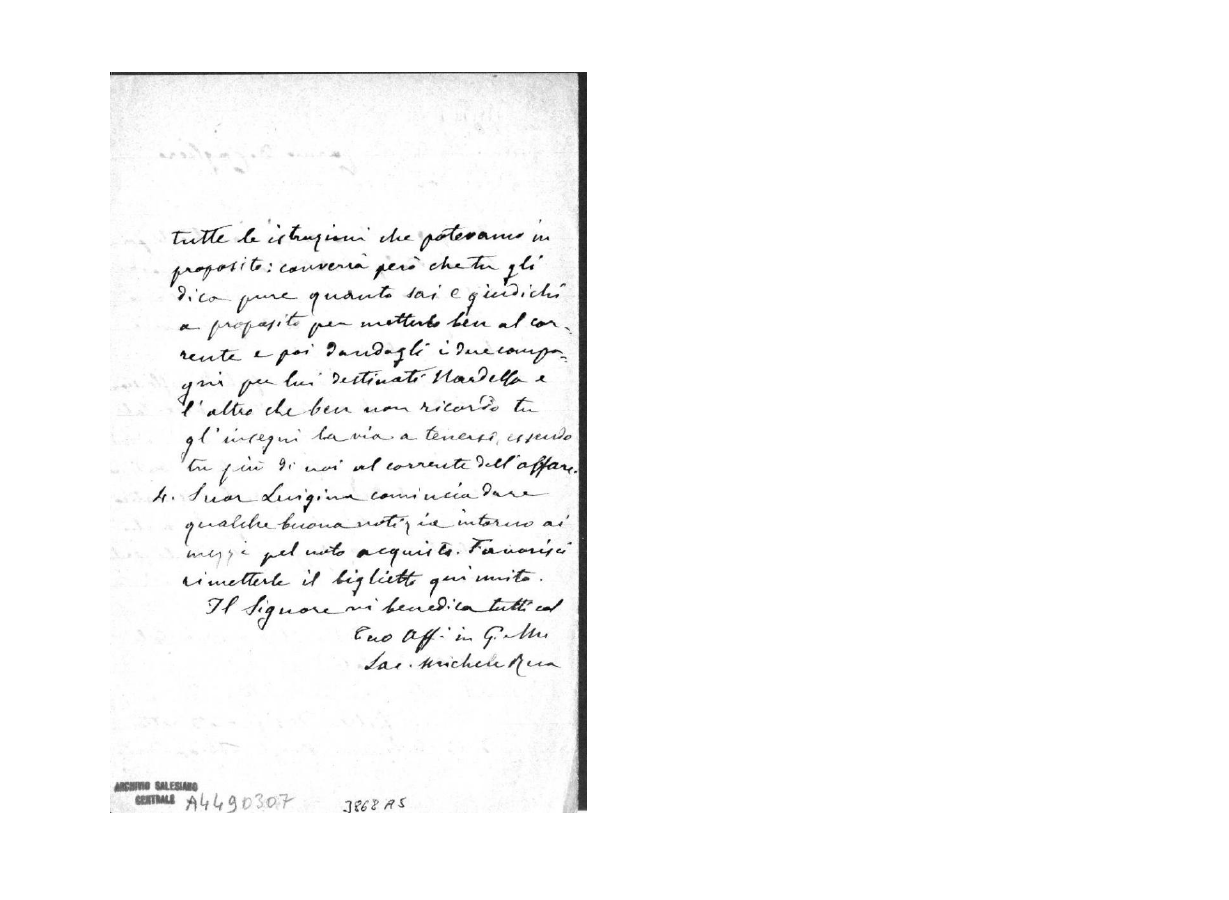 tutte le istruzioni che potevamo in
proposito: converrà però che tu gli
dica pure quanto sai e giudichi
a proposito per metterlo ben al cor-
rente e poi dandogli i due compa-
gni per lui destinati Nardella e
l'altro che ben non ricordo tu
gl'insegni la via a tenersi, essendo
tu più di noi al corrente dell'affare.
4. Suor Luigina comincia dare
qualche buona notizia intorno ai
mezzi pel noto acquisto. Favorisci
rimetterle il biglietto qui unito.
Il Signore vi benedica tutti col
Tuo Aff. in G. e M.
Sac. Michele Rua
ARCHIVIO SALESIANO
CENTRALE A4490307 3868 A5